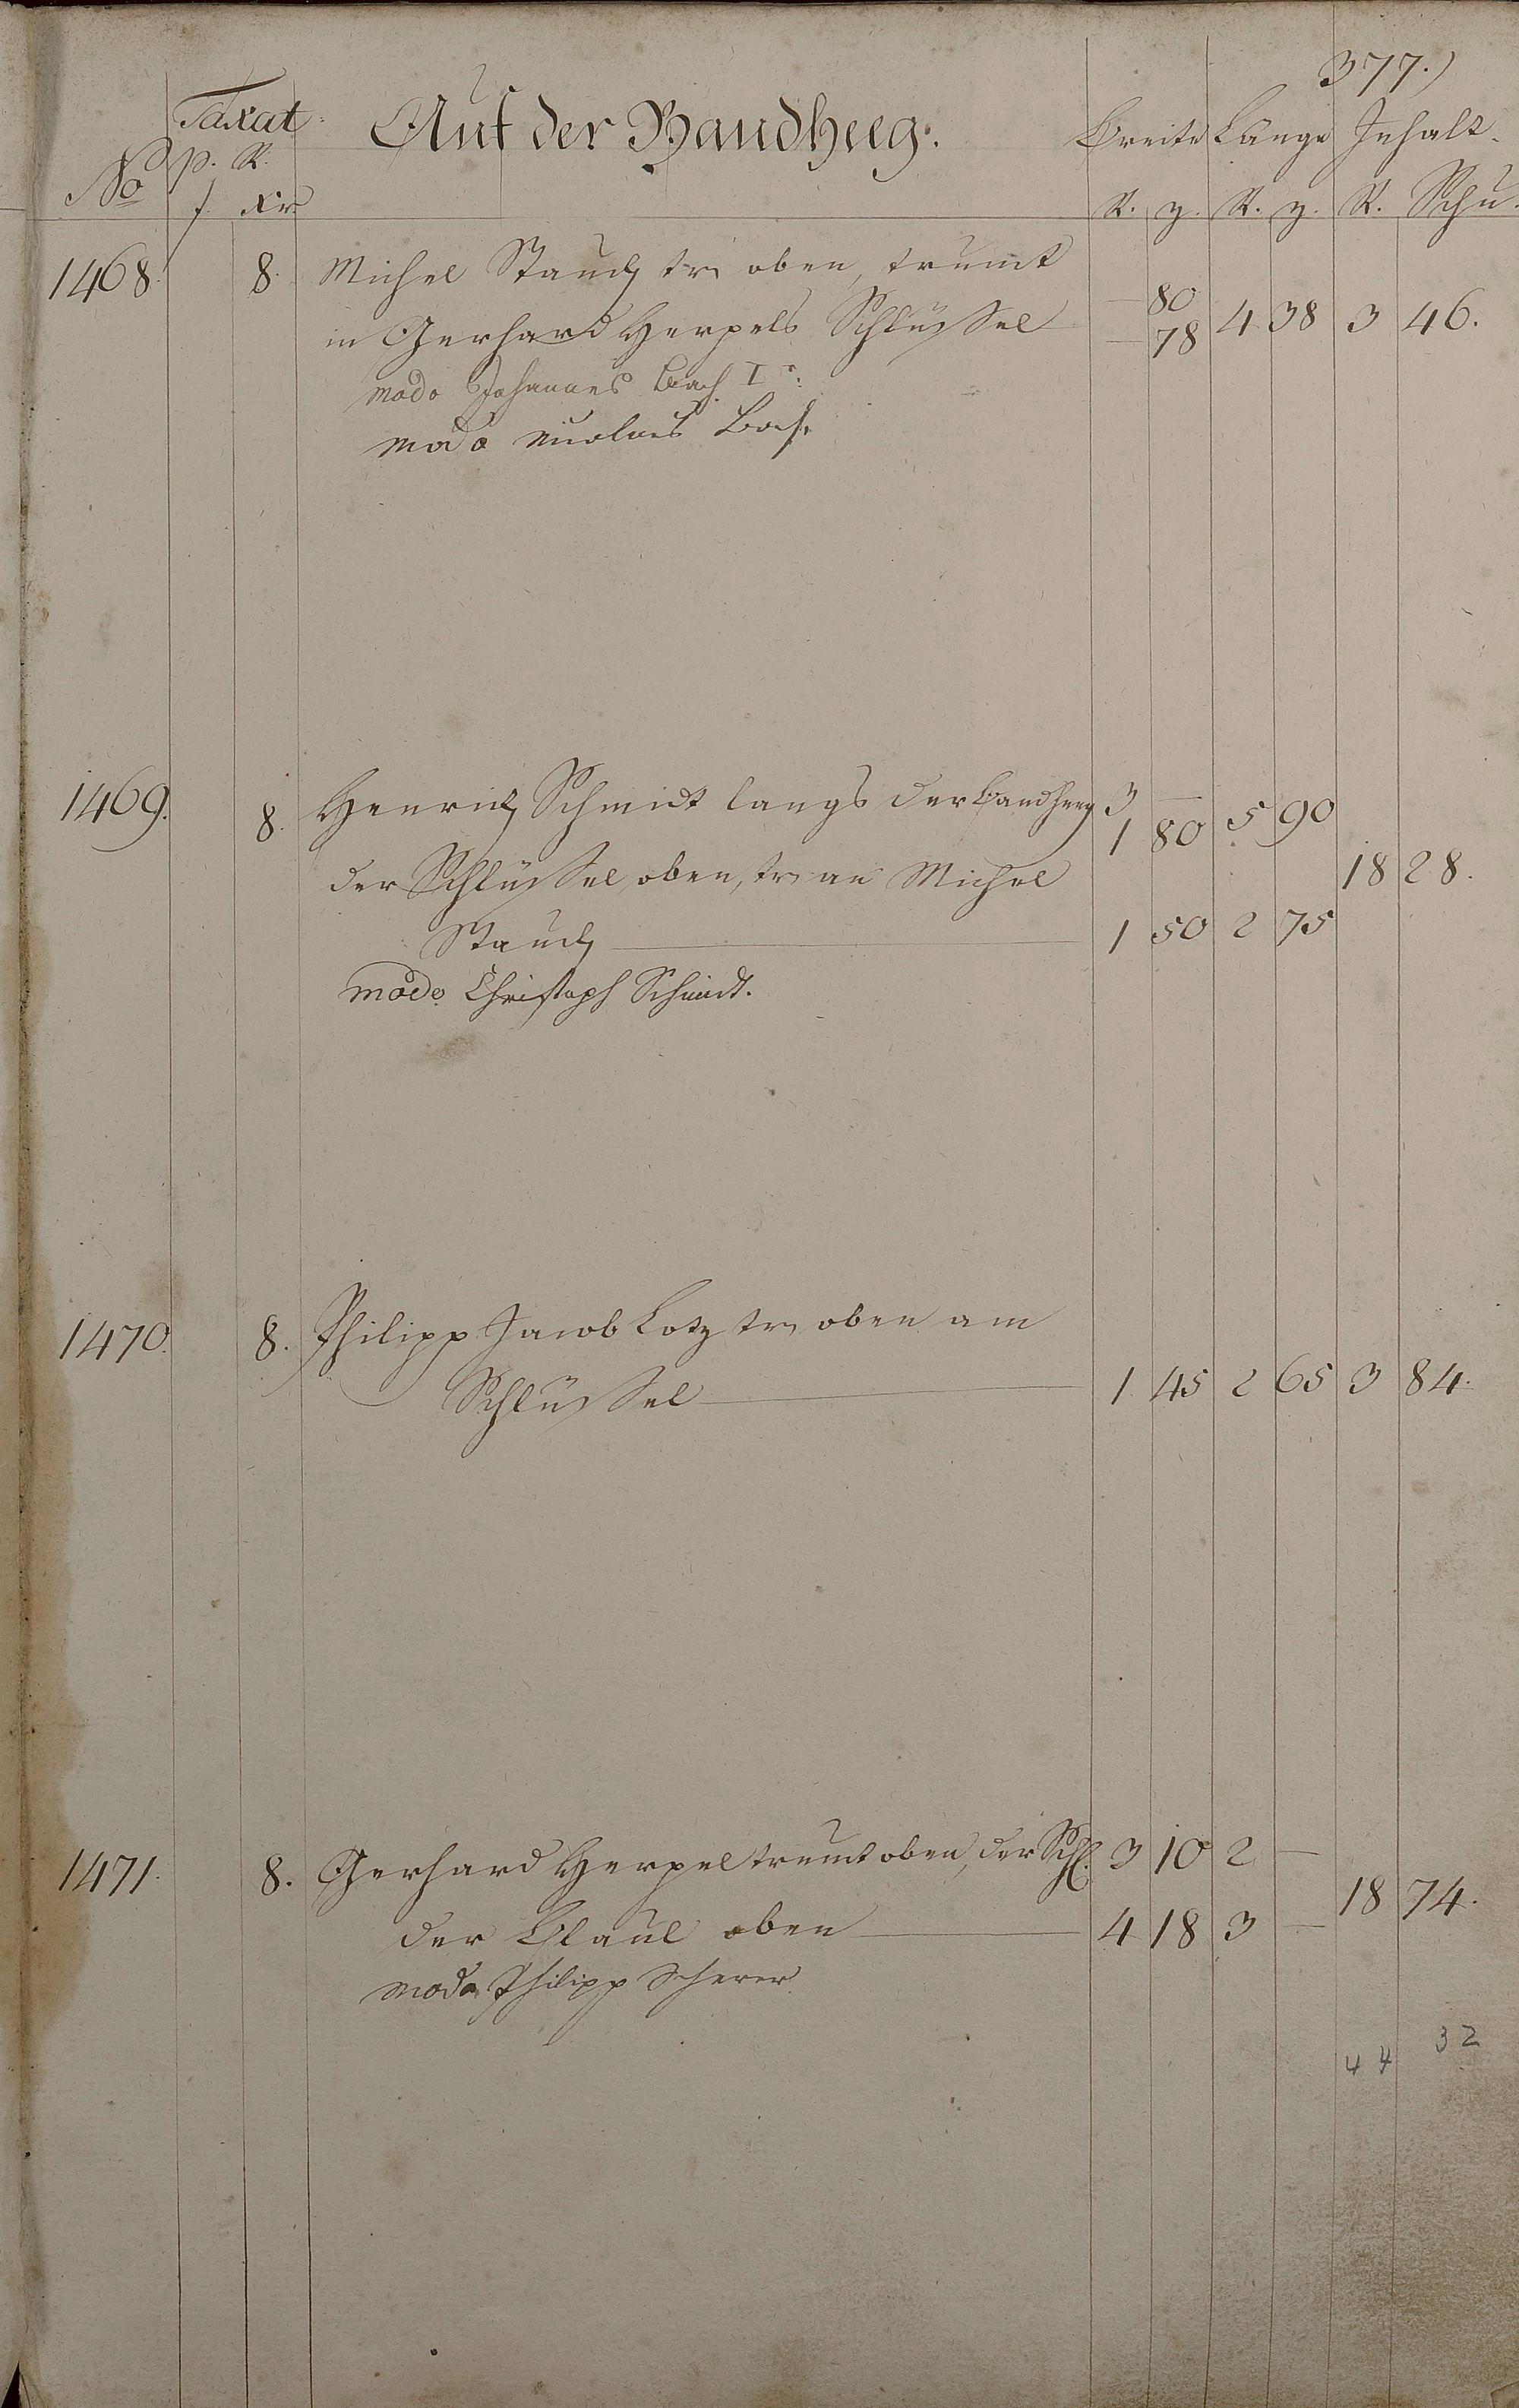 377.)
Taxat. Auf der Bandheeg. Breite Länge Inhalt.
No p. R.
f. Xr. R. z. R. z. R. Schu.
1468. 8. Michel Stauch tr. oben, trumt
in Gerhard Herpels Schlüssel — 80 / — 78 4 38 3 46.
modo Johannes Bach I r:
modo Nicolaus Bach
1469. 8. Henrich Schmidt langs der Bandheeg 3 — / 1 80 5 90
der Schlüssel oben, tr. an Michel 18 28.
Stauch — 1 50 2 75
modo Christoph Schmidt.
1470. 8. Philipp Jacob Lotz tr. oben am
Schlüssel — 1 45 2 65 3 84.
1471. 8. Gerhard Herpel trumt oben, der Schl. 3 10 2 —
18 74.
der oben — 4 18 3 —
modo Philipp Scherer
44 32